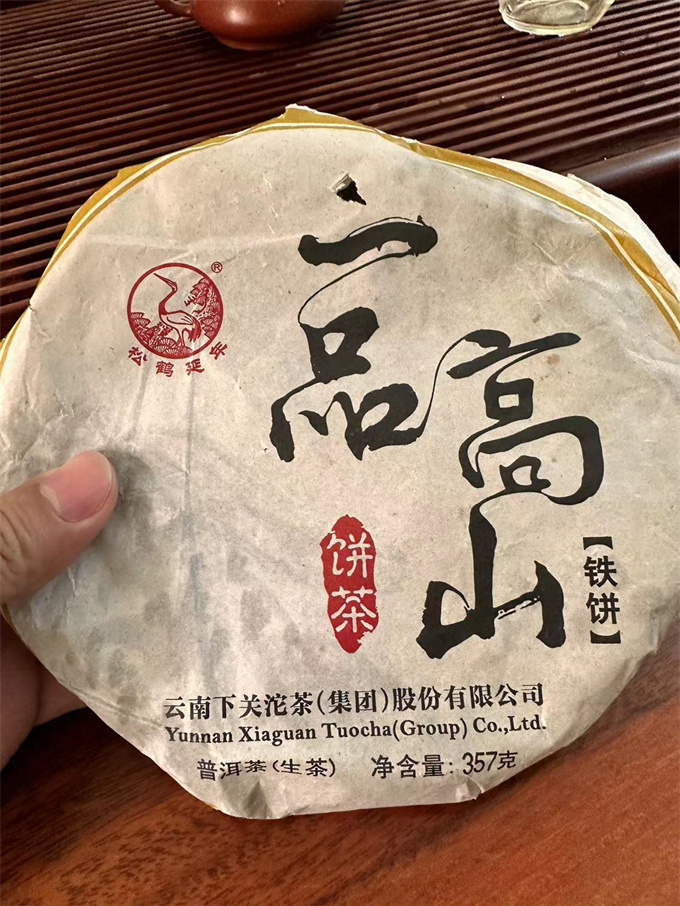 ®
松鹤延年
一品
高山
饼茶
【铁饼】
云南下关沱茶(集团)股份有限公司
Yunnan Xiaguan Tuocha(Group) Co.,Ltd.
普洱茶(生茶) 净含量: 357克